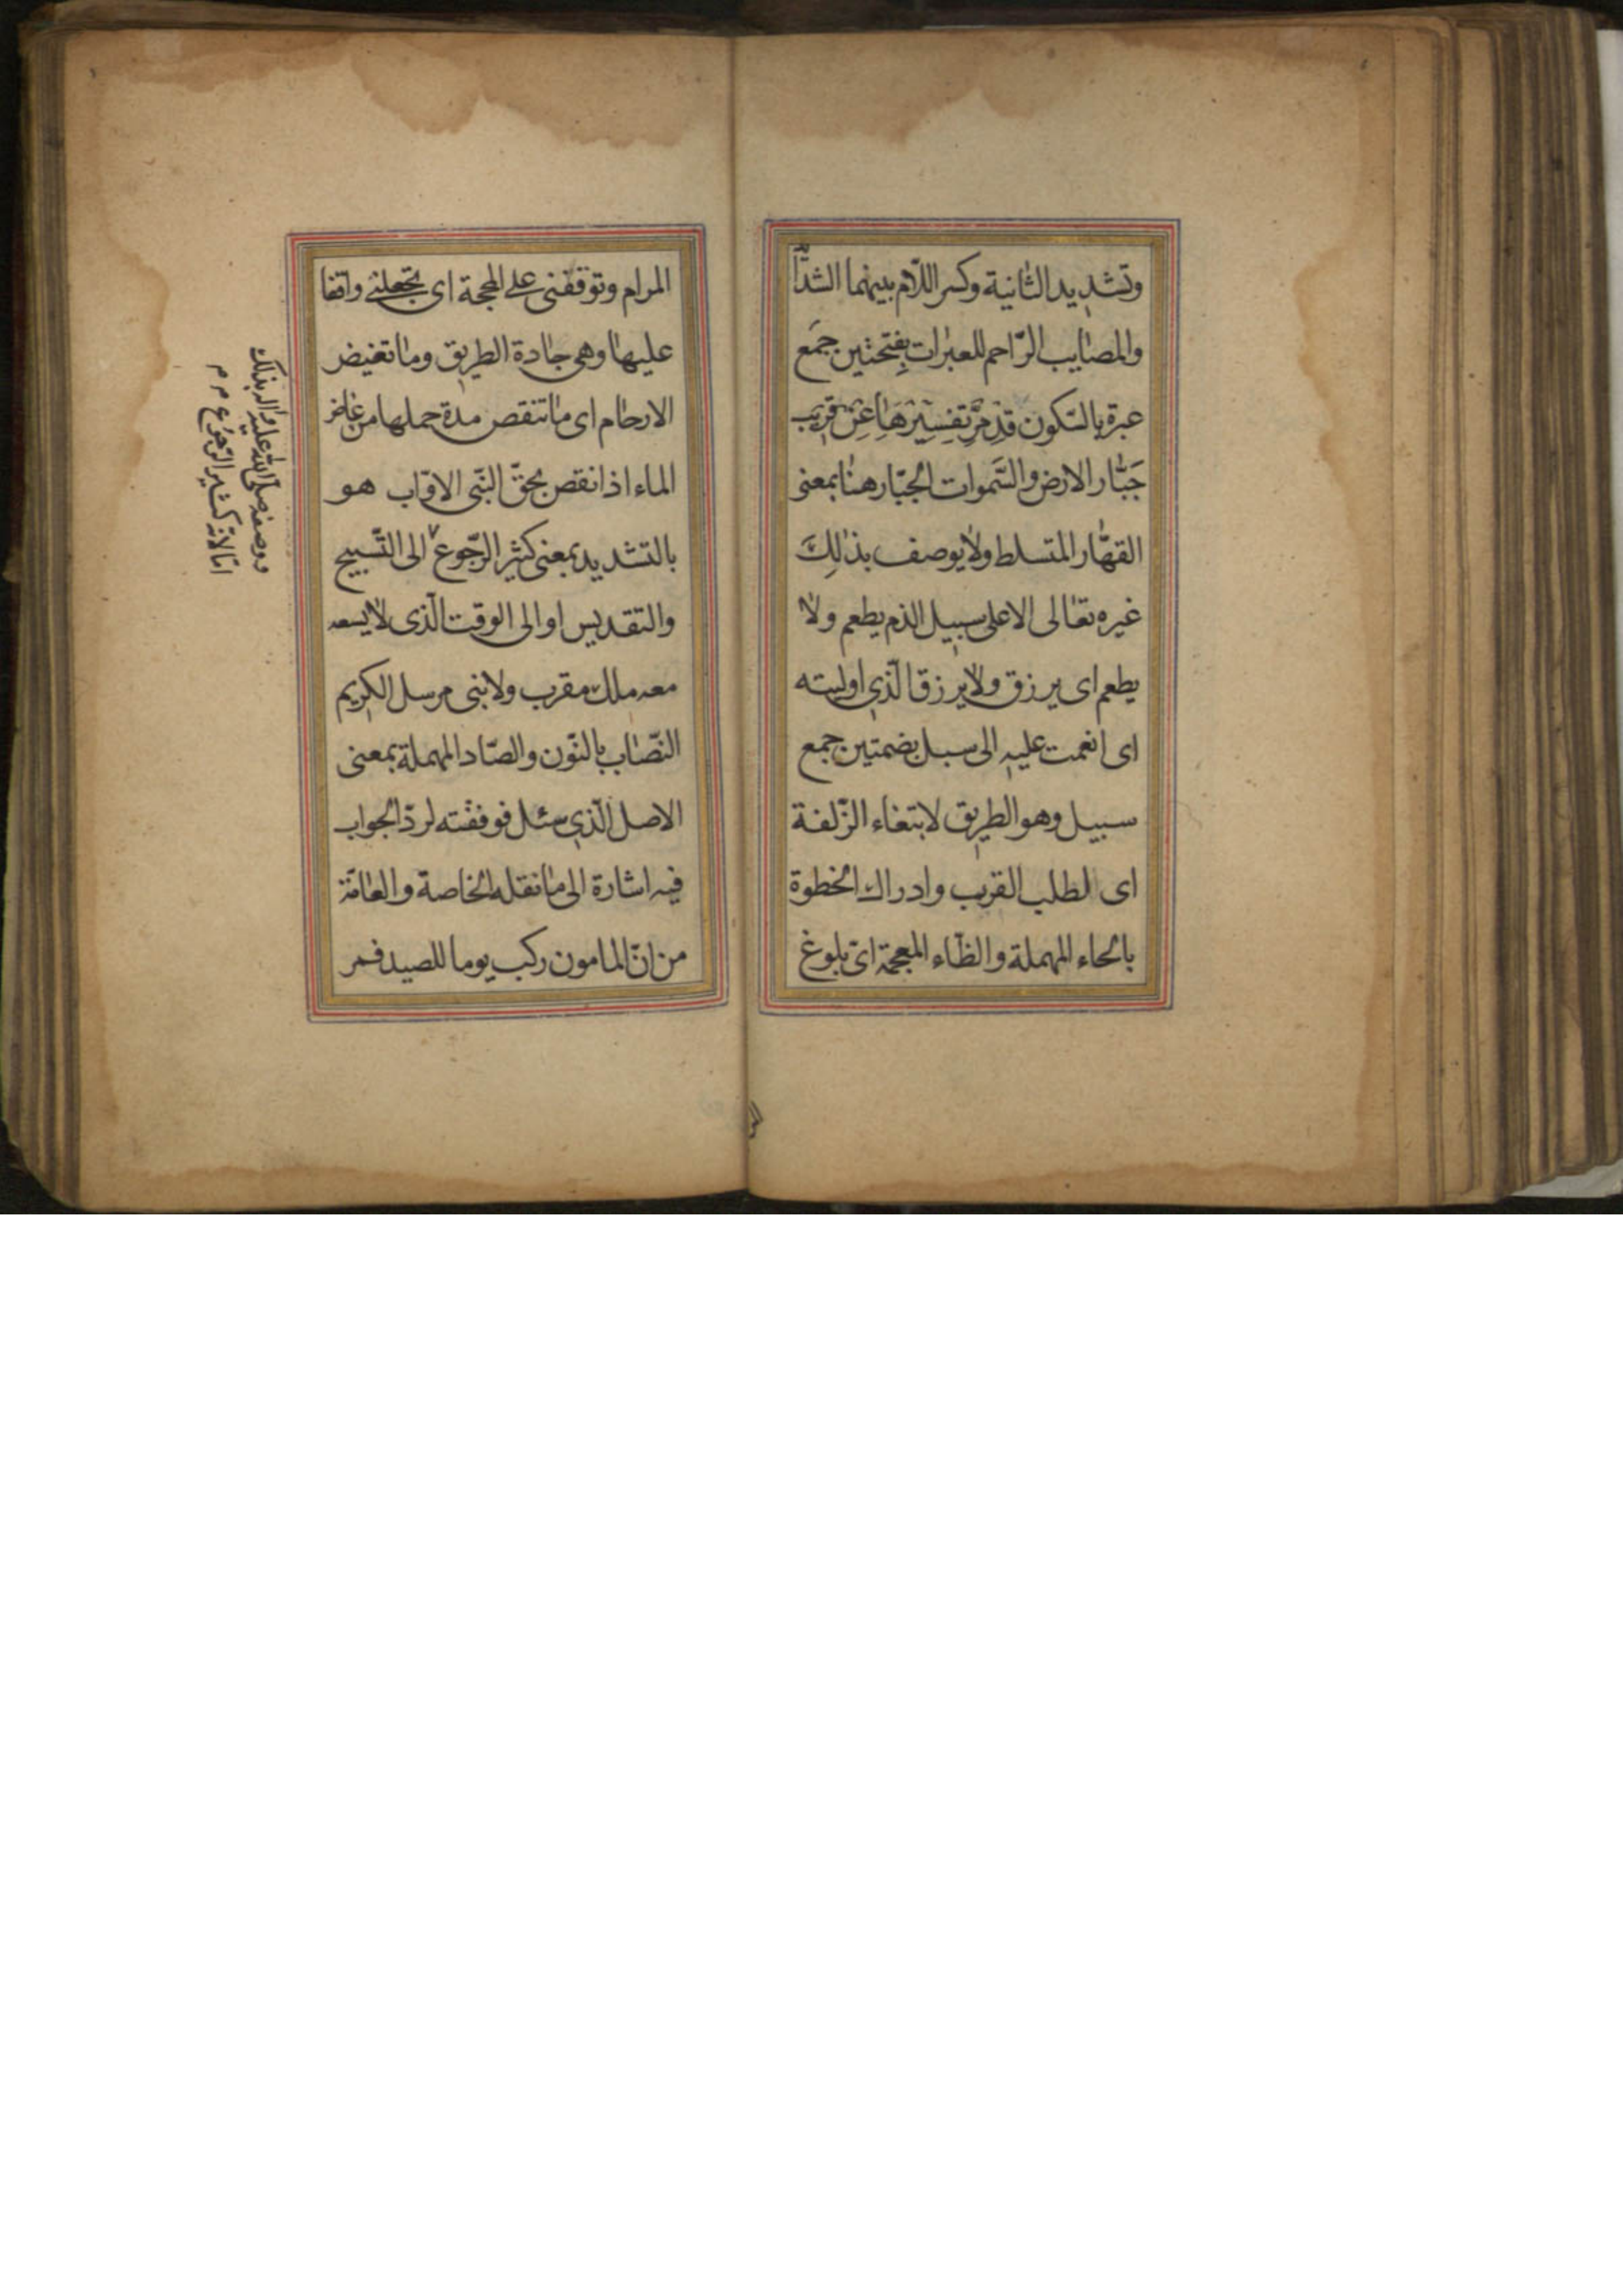 وتشديد الثانية وكسر اللام بينهما الشدّا
والمصايب الرّاحم للعبرات بفتحتين جمع
عبرة بالسّكون قد مرّ تفسيرها عن قريب
جبّار الارض والسّموات الجبّار هنا بمعنى
القهّار المتسلط ولا يوصف بذلك
غيره تعالى الا على سبيل الذم يطعم ولا
يطعم اى يرزق ولا يرزق الّذى اوليته
اى انعمت عليه الى سبل بضمتين جمع
سبيل وهو الطريق لابتغاء الزّلفة
اى لطلب القرب وادراك الخطوة
بالحاء المهملة والظّاء المعجمة اى بلوغ
المرام وتوقفنى على المحجة اى تجعلنى واقفا
عليها وهى جادة الطريق وما تغيض
الارحام اى ما تنقص مدة حملها من غاض
الماء اذا نقص بحقّ النّبى الاوّاب هو
بالتشديد بمعنى كثير الرّجوع الى التّسبيح
والتقديس او الى الوقت الّذى لا يسعه
معه ملك مقرب ولا نبى مرسل الكريم
النّصاب بالنّون والصّاد المهملة بمعنى
الاصل الّذى سئل فوفقته لردّ الجواب
فيه اشارة الى ما نقله الخاصة والعامّة
من انّ المامون ركب يوما للصيد فمر
ووصفه صلّى الله عليه واله بذلك
امّا لانّه كثير الرّجوع م م